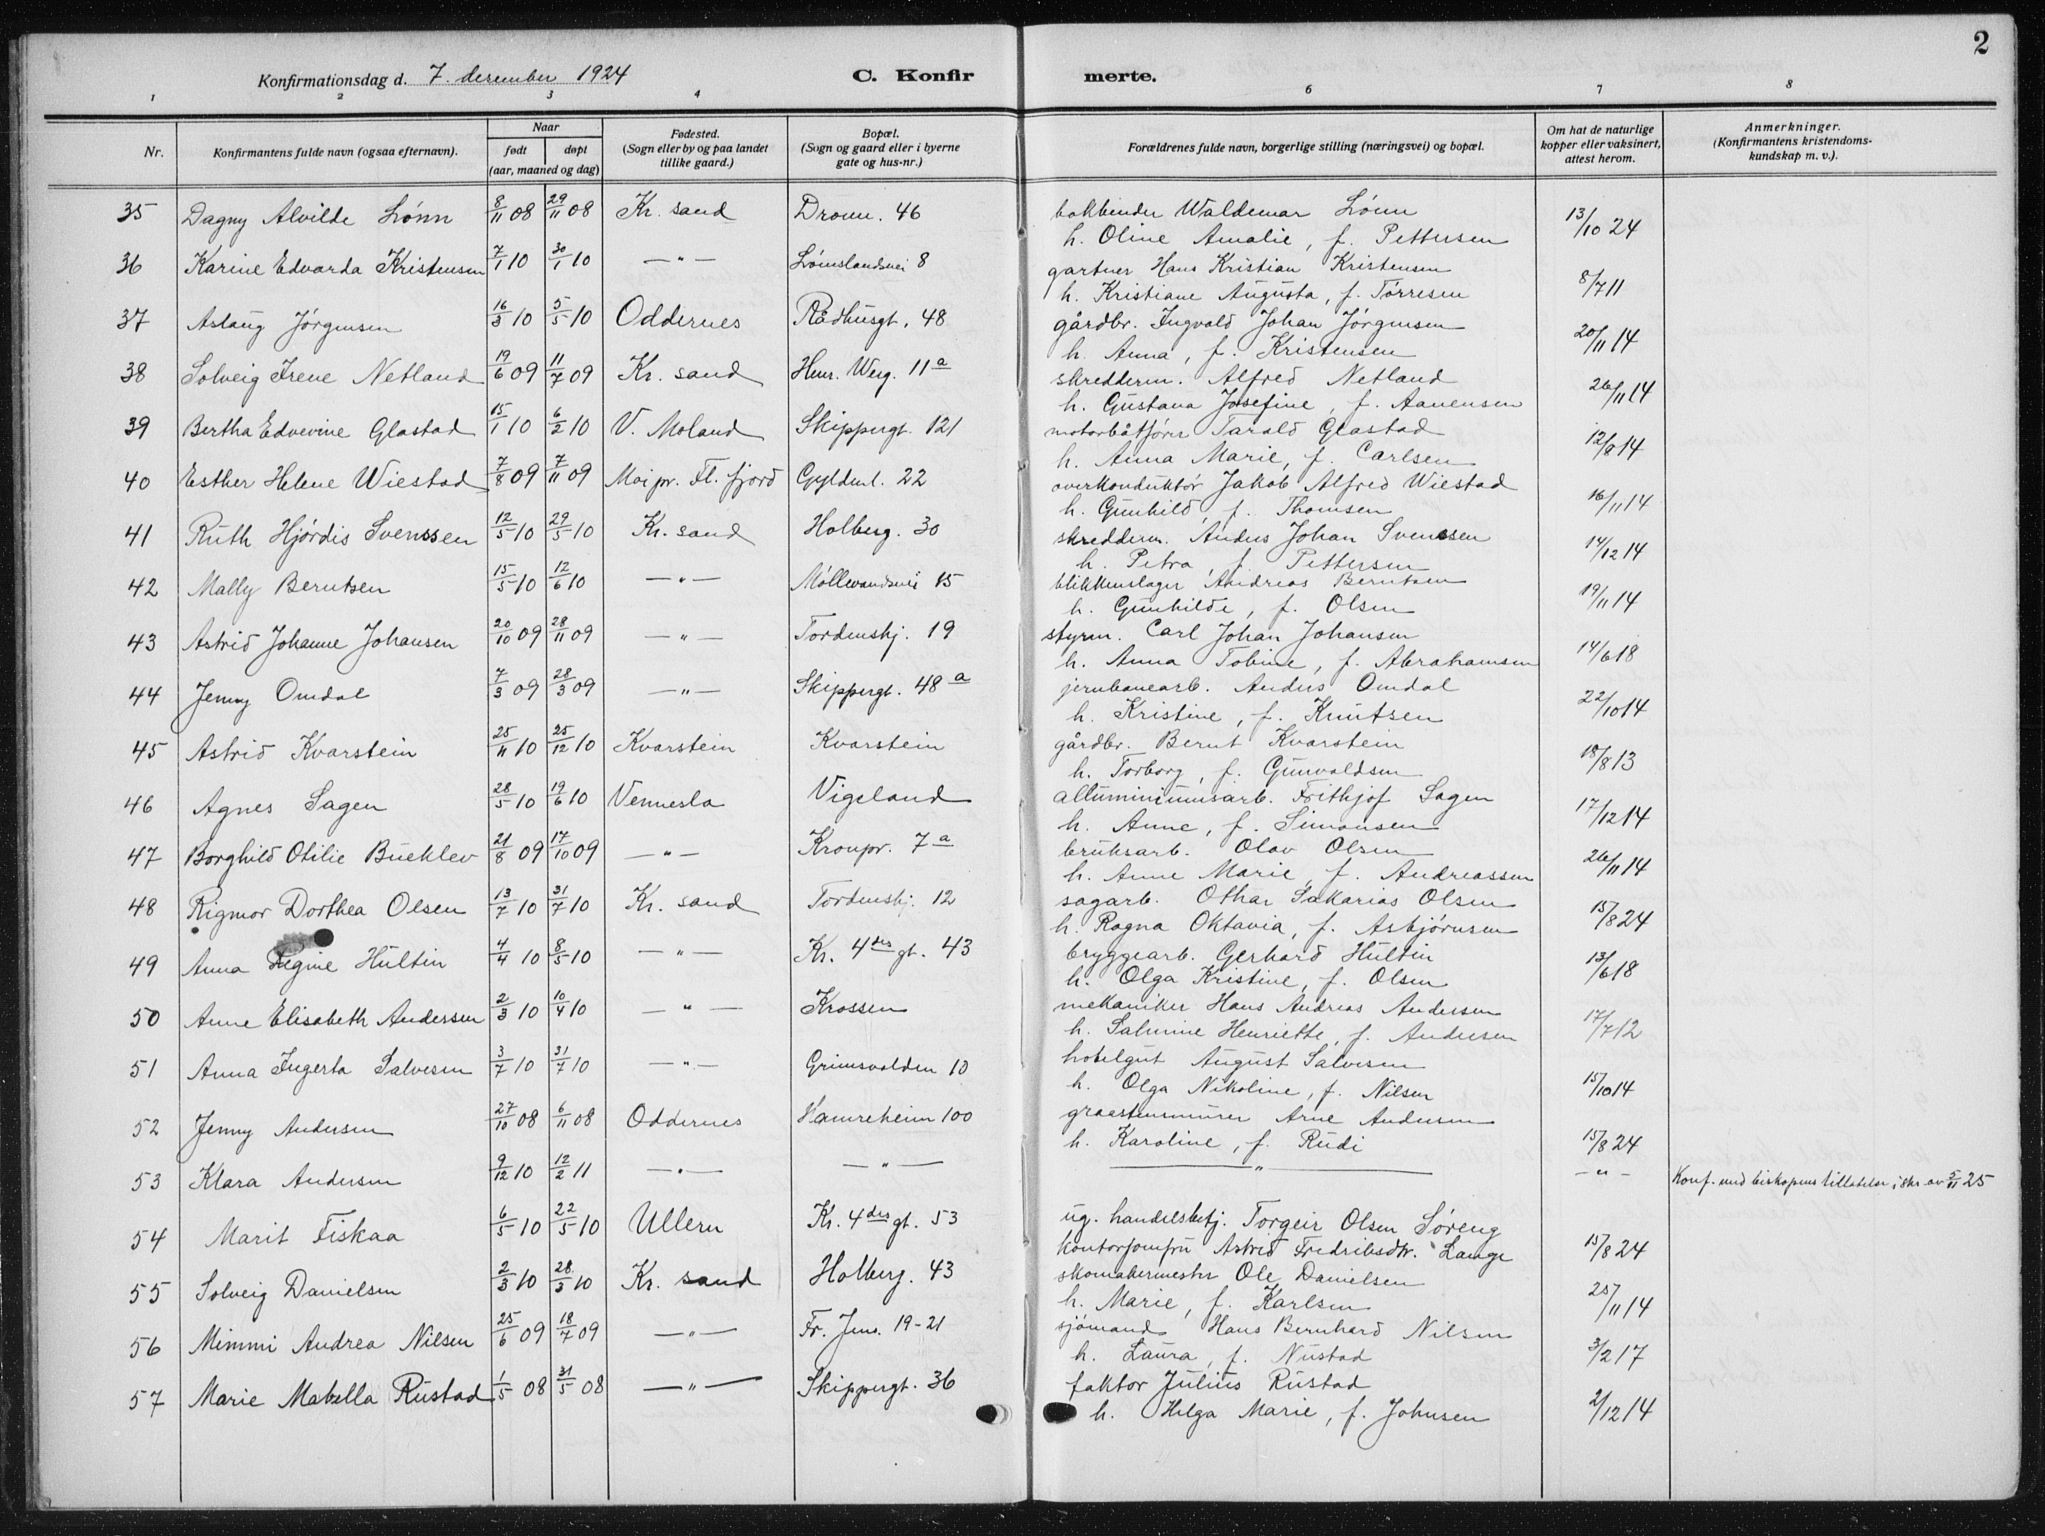 2
Konfirmationsdag d. 7. desember 1924 C. Konfir merte.
1 2 3 4 6 7 8
Nr. Konfirmantens fulde navn (ogsaa efternavn). Naar født døpt (aar, maaned og dag) Fødested. (Sogn eller by og paa landet tillike gaard.) Bopæl. (Sogn og gaard eller i byerne gate og hus-nr.) Forældrenes fulde navn, borgerlige stilling (næringsvei) og bopæl. Om hat de naturlige kopper eller vaksinert, attest herom. Anmerkninger. (Konfirmantens kristendoms-kundskap m. v.).
35 Dagny Alvilde Lónn 8/11 08 29/11 08 Kr. sand Dronn. 46 bokbinder Waldemar Lónn 13/10 24
h. Oline Amalie, f. Pettersen
36 Karine Edvarda Kristensen 7/1 10 30/1 10 —"— Lómslandsvei 8 gartner Hans Kristian Kristensen 8/7 11
h. Kristiane Augusta, f. Tórresen
37 Aslaug Jórgensen 16/3 10 5/5 10 Oddernes Rådhusgt. 48 gårdbr. Ingvald Johan Jórgensen 20/11 14
h. Anna, f. Kristensen
38 Solveig Irene Netland 19/6 09 11/7 09 Kr. sand Henr. Werg. 11a skredderm. Alfred Netland 26/11 14
h. Gustava Josefine, f. Aanensen
39 Bertha Edvevine Glastad 15/1 10 6/2 10 V. Moland Skippergt. 121 motorbåtfórer Tarald Glastad 12/9 14
h. Anna Marie, f. Carlsen
40 Esther Helene Wiestad 7/8 09 7/11 09 Moi pr. Fl. fjord Gyldenl. 22 overkonduktór Jakob Alfred Wiestad 16/11 14
h. Gunhild, f. Thomsen
41 Ruth Hjórdis Svenssen 12/5 10 29/5 10 Kr. sand Holberg. 30 skredderm. Anders Johan Svenssen 14/12 14
h. Petra, f. Pettersen
42 Mally Berntsen 15/5 10 12/6 10 —"— Móllevandsvei 15 blikkenslager Andreas Berntsen 19/11 14
h. Gunhilde, f. Olsen
43 Astrid Johanne Johansen 20/10 09 28/11 09 —"— Tordenskj. 19 styrm. Carl Johan Johansen 14/6 18
h. Anna Tobine, f. Abrahamsen
44 Jenny Omdal 7/3 09 28/3 09 —"— Skippergt. 48a jernbanearb. Anders Omdal 22/10 14
h. Kristine, f. Knutsen
45 Astrid Kvarstein 25/11 10 25/12 10 Kvarstein Kvarstein gårdbr. Bernt Kvarstein 18/8 13
h. Torborg, f. Gunvaldsen
46 Agnes Sagen 28/5 10 19/6 10 Vennesla Vigeland alluminiumsarb. Frithjof Sagen 17/12 14
h. Anne, f. Simonsen
47 Borghild Otilie Bueklev 21/8 09 17/10 09 —"— Kronpr. 7a bruksarb. Olav Olsen 26/11 14
h. Anne Marie, f. Andreassen
48 Rigmor Dorthea Olsen 13/7 10 31/7 10 Kr. sand Tordenskj. 12 sagarb. Othar Sakarias Olsen 15/8 24
h. Ragna Oktavia, f. Asbjórnsen
49 Anna Regine Hultin 4/4 10 8/5 10 —"— Kr. 4des gt. 43 bryggearb. Gerhard Hultin 13/6 18
h. Olga Kristine, f. Olsen
50 Anne Elisabeth Andersen 2/3 10 10/4 10 —"— Krossen mekaniker Hans Andreas Andersen 17/7 12
h. Salmine Henriette, f. Andersen
51 Anna Ingerta Salvesen 3/7 10 31/7 10 —"— Grimsvolden 10 hotelgut August Salvesen 15/10 14
h. Olga Nikoline, f. Nilsen
52 Jenny Andersen 27/10 08 6/11 08 Oddernes Hamreheim 100 graastensmurer Arne Andersen 15/8 24
h. Karoline, f. Rudi
53 Klara Andersen 9/12 10 12/2 11 —"— —"— —"— —"— Konf. med biskopens tillatelse i skr. av 5/11 25
54 Marit Fiskaa 6/5 10 22/5 10 Ullern Kr. 4des gt. 53 ug. handelsbetj. Torgeir Olsen Sóreng 15/8 24
kontorjomfru Astrid Fredriksdtr. Lange
55 Solveig Danielsen 2/3 10 28/3 10 Kr. sand Holberg. 43 skomakermester Ole Danielsen 25/11 14
h. Marie, f. Karlsen
56 Mimmi Andrea Nilsen 25/6 09 18/7 09 —"— Fr. Jens. 19-21 sjómand Hans Bernhard Nilsen 3/2 17
h. Laura, f. Nustad
57 Marie Mabella Rustad 1/5 08 31/5 08 —"— Skippergt. 36 faktor Julius Rustad 2/12 14
h. Helga Marie, f. Johnsen